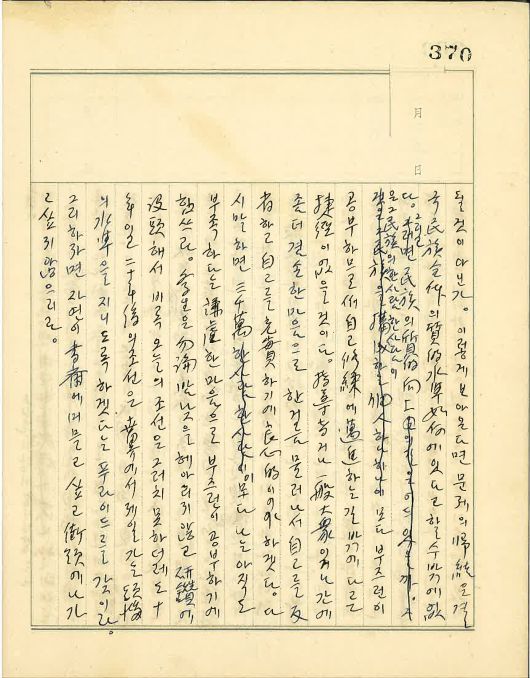 370
月
日
될것이다닌가. 이렇게보아온다면 문제의歸結은결
국民族全体의質的水準如何에있다고 할수밖에없
다. 그러면民族의質的向上
공부하므로써自己修練에邁進하는길밖에다른
捷徑이없을것이다. 指導者거나 一般大衆이거나간에
좀더겸손한마음으로 한거름 물러나서 自己를反
省하고自己를充實하기에良心的이어야하겠다. 다
시말하면 三千萬한사람한사람이모다나는아직도
부족하다는謙虛한마음으로 부즈런이공부하기에
힘쓰라. 学生은勿論밤낮을헤아리지않고 研鑽에
没頭해서 비록오늘의조선은그러치못하더래도十
年後일二十年後의조선은世界에서제일가는
의水準을지니도록하겠다는푸라이드를갖이라.
그리하라면 자연이書斎에머물고싶고街頭에나가
고싶지않으리라.